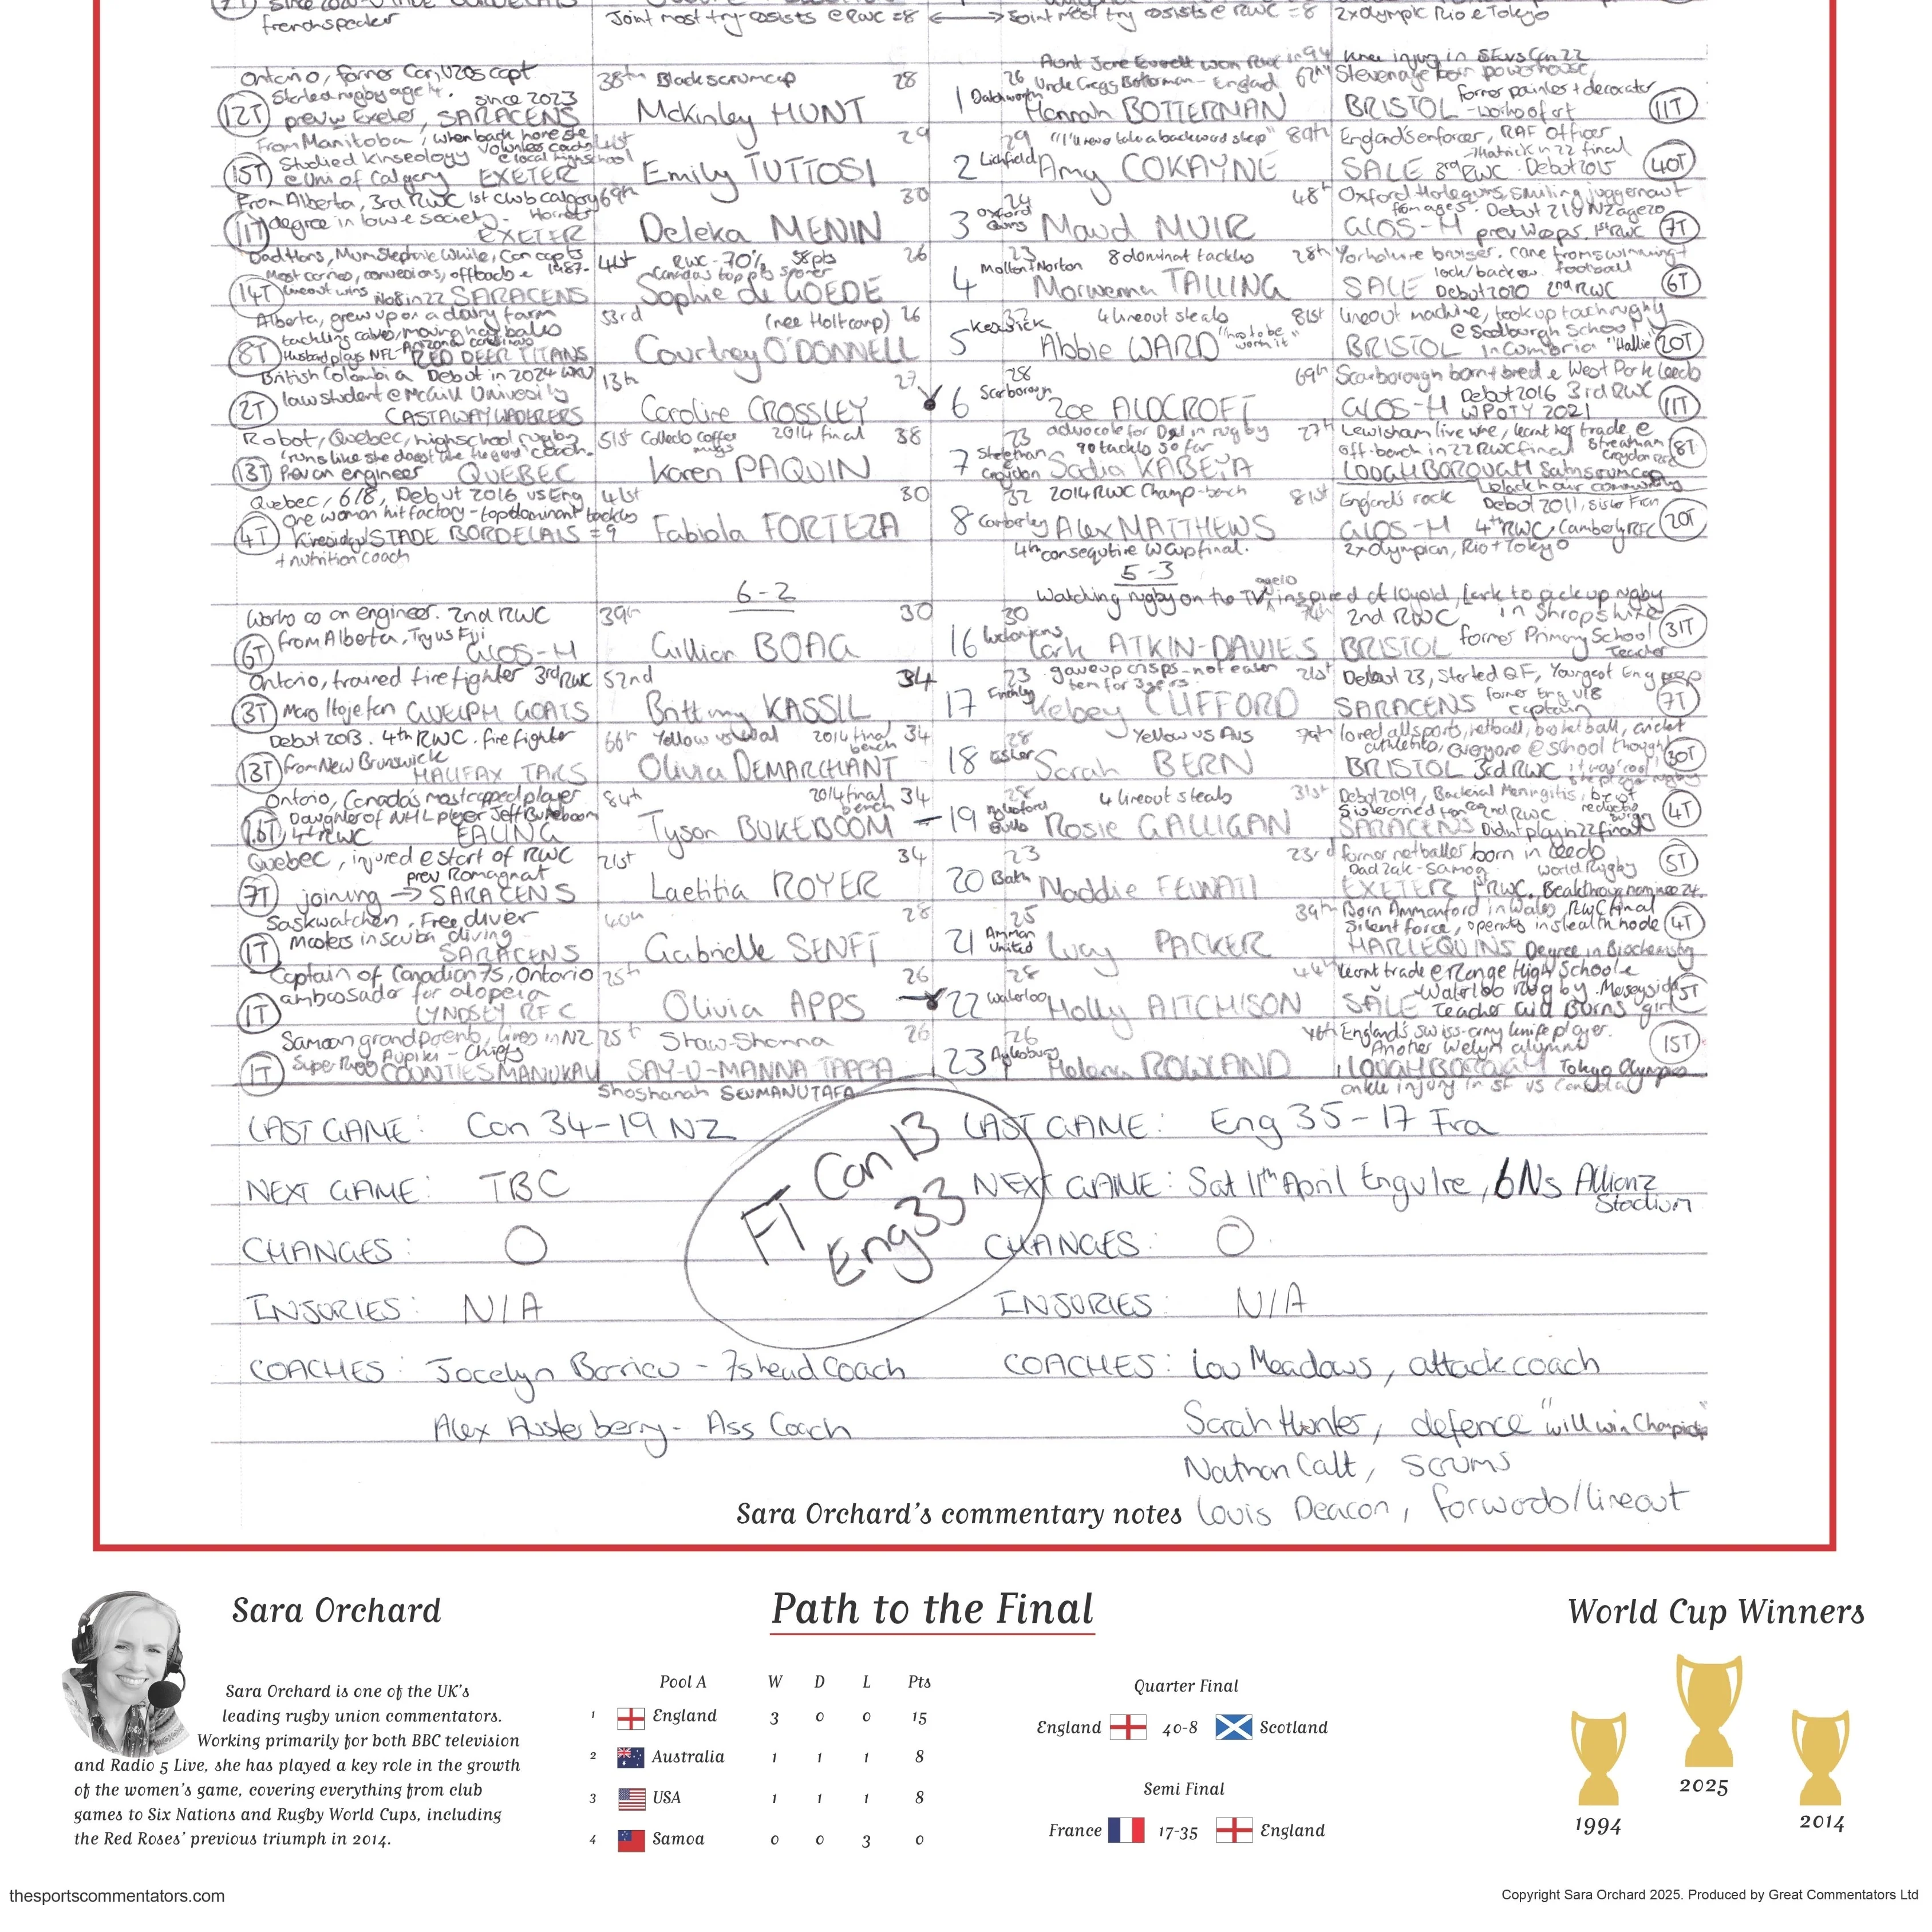 frenchspeaker
Joint most try-assists @ RWC = 8
Joint most try assists @ RWC = 8
2x olympic Rio & Tokyo
Ontario, former Can U20s capt
Started rugby age 14. since 2023
prev w Exeter, SARACENS
12T
38th Black scrumcap 28
McKinley HUNT
Aunt Jane Everett won RWC in 94
26 Uncle Gregg Botterman - England 62nd
1 Datchworth Hannah BOTTERMAN
knee injury in
Stevenage born powerhouse,
former painter + decorator
BRISTOL - works of art 11T
From Manitoba, when back home she
volunteer coaches
Studied Kinesiology @ local highschool
15T @ Uni of Calgary EXETER
41st 29
Emily TUTTOSI
29 "I'll never take a backward step" 89th
2 Lichfield Amy COKAYNE
England's enforcer, RAF Officer
hatrick in 22 final
SALE 3rd RWC. Debut 2015 40T
From Alberta, 3rd RWC 1st club Calgary
11T degree in law & society - Hornets
EXETER
69th 30
DeLeka MENIN
24 48th
3 Oxford Quins Maud MUIR
Oxford Harlequins, smiling juggernaut
from ages. Debut 21 v NZ age 20
GLOS-H prev Wasps. 1st RWC 7T
Dad Hans, Mum Stephanie White, Can capts
Most carries, conversions, offloads & 1987-
14T lineout wins No8 in 22 SARACENS
41st RWC - 70% 58pts 26
Canada's top pts scorer
Sophie de GOEDE
23 8 dominat tackles 28th
Molton + Norton
4 Morwenna TALLING
Yorkshire bruiser. came from swimming +
lock/backrow. football
SALE Debut 2020 2nd RWC 6T
Alberta, grew up on a dairy farm
tackling calves, moving hay bales
Husband plays NFL - Arizona cardinals
8T RED DEER TITANS
53rd (nee Holtcamp) 26
Courtney O'DONNELL
32 4 lineout steals 81st
5 Keswick Abbie WARD "has to be worth it"
lineout machine, took up touch rugby
@ Sedburgh School
BRISTOL in Cumbria "Hallie" 20T
British Colombia Debut in 2024 WXV
2T law student @ McGill University
CASTAWAY WANDERERS
13th 27
Caroline CROSSLEY
28 69th
6 Scarborough Zoe ALDCROFT
Scarborough born + bred & West Park Leeds
Debut 2016 3rd RWC
GLOS-H WPOTY 2021 11T
Robot, Quebec, highschool rugby
coach.
13T Prev an engineer QUEBEC
51st Collects coffee mugs 2014 final 38
Karen PAQUIN
23 advocate for Deaf in rugby 27th
90 tackles so far
7 Streatham Croydon Sadia KABEYA
Lewisham live wire, learnt her trade @
off-bench in 22 RWC final Streatham Croydon RFC
LOUGHBOROUGH 8T
black hair community
Quebec, 6/8, Debut 2016 vs Eng
one woman hit factory - top dominant tackles
4T Kinesiology STADE BORDELAIS = 9
+ nutrition coach
41st 30
Fabiola FORTEZA
32 2014 RWC Champ - bench 81st
8 Camberley Alex MATTHEWS
4th consequtive W Cup final.
England's rock Debut 2011, sister Fran
GLOS-H 4th RWC, Camberley RFC 20T
2x olympian, Rio + Tokyo
6-2
5-3
Works as an engineer. 2nd RWC
from Alberta, Try vs Fiji
6T GLOS-H
39th 30
Gillian BOAG
Watching rugby on the TV, age 10 inspired at 10 yr old, Lark to pick up rugby
30 74th
16 Lark ATKIN-DAVIES
2nd RWC in Shropshire
BRISTOL former Primary School Teacher 31T
Ontario, trained firefighter 3rd RWC
3T Maro Itoje fan GUELPH GOATS
52nd 34
Brittany KASSIL
23 gave up crisps - not eaten 21st
them for 3 years
17 Finchley Kelsey CLIFFORD
Debut 23, Started QF, Youngest Eng prop
SARACENS former Eng U18 captain 7T
Debut 2013. 4th RWC. firefighter
13T from New Brunswick
HALIFAX TARS
66th Yellow vs Wal 2014 final bench 34
Olivia DEMERCHANT
28 Yellow vs Aus 79th
18 Esher Sarah BERN
loved all sports, netball, basketball, cricket
athletics, everyone @ school thought
BRISTOL 3rd RWC it was 'cool' 30T
she played rugby
Ontario, Canada's most capped player
Daughter of NHL player Jeff Bukeboom
4th RWC EALING
84th 2014 final bench 34
Tyson BUKEBOOM
4 lineout steals 31st
19 Rosie GALLIGAN
Debut 2019, Bacterial Meningitis, breast reduction surgery
2nd RWC
SARACENS Didnt play in 22 final 4T
Quebec, injured @ start of RWC
prev Romagnat
7T joining → SARACENS
21st 34
Laetitia ROYER
23 23rd
20 Bath Maddie FEUNATI
former netballer born in Leeds
Dad Zak - Samoa World Rugby
EXETER 1st RWC. Breakthrough nominee 24 5T
Saskwatchen. Free diver
1T Masters in scuba diving
SARACENS
40th 28
Gabrielle SENFT
25 39th
21 Amman United Lucy PACKER
Born Ammanford in Wales, RWC final
Silent force, operates in stealth mode
HARLEQUINS Degree in Biochemistry 4T
Captain of Canadian 7s, Ontario
1T ambassador for alopecia
LYNDSEY RFC
25th 26
Olivia APPS
28 44th
22 Waterloo Holly AITCHISON
learnt trade @ Range High School &
Waterloo rugby. Merseyside
SALE Teacher Girl Burns 'girl' 5T
Samoan grandparents, lives in NZ
Super Rugby Aupiki - Chiefs
1T COUNTIES MANUKAU
25th Shaw-Shanna 26
SAY-U-MANNA TAFFA
Shoshanah SEUMANUTAFA
26
23 Aylesbury Helena ROWLAND
England's swiss-army knife player.
Another Welyn alumni
LOUGHBOROUGH Tokyo Olympics 15T
ankle injury in SF vs Canada
LAST GAME: Can 34-19 NZ
LAST GAME: Eng 35-17 Fra
FT Can 13
Eng 33
NEXT GAME: TBC
NEXT GAME: Sat 11th April Eng v Ire, 6Ns Allianz
Stadium
CHANGES: 0
CHANGES: 0
INJURIES: N/A
INJURIES: N/A
COACHES: Jocelyn Barrieu - 7s head Coach
COACHES: Lou Meadows, attack coach
Alex Austerberry - Ass Coach
Sarah Hunter, defence "will win Champions"
Nathan Catt, scrums
Sara Orchard's commentary notes
Louis Deacon, forwards/lineout
Sara Orchard
Path to the Final
World Cup Winners
Sara Orchard is one of the UK's
leading rugby union commentators.
Working primarily for both BBC television
and Radio 5 Live, she has played a key role in the growth
of the women's game, covering everything from club
games to Six Nations and Rugby World Cups, including
the Red Roses' previous triumph in 2014.
Pool A W D L Pts
1 England 3 0 0 15
2 Australia 1 1 1 8
3 USA 1 1 1 8
4 Samoa 0 0 3 0
Quarter Final
England 40-8 Scotland
Semi Final
France 17-35 England
1994
2025
2014
thesportscommentators.com
Copyright Sara Orchard 2025. Produced by Great Commentators Ltd